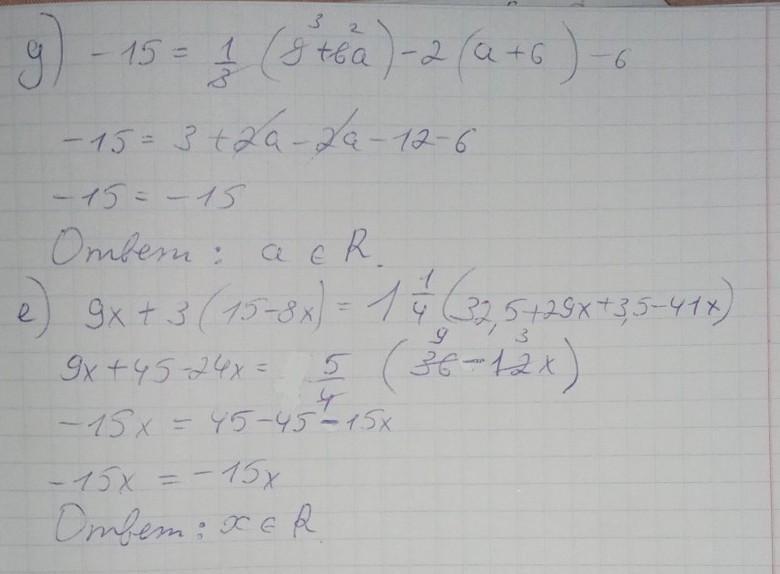 g) -15 = 1/3 (9+6a) - 2 (a+6) - 6
3 2
-15 = 3 + 2a - 2a - 12 - 6
-15 = -15
Ответ: a ∈ R.
e) 9x + 3 (15-8x) = 1 1/4 (32,5+29x+3,5-41x)
9x+45-24x = 5/4 (36-12x)
9 3
-15x = 45-45-15x
-15x = -15x
Ответ: x ∈ R.